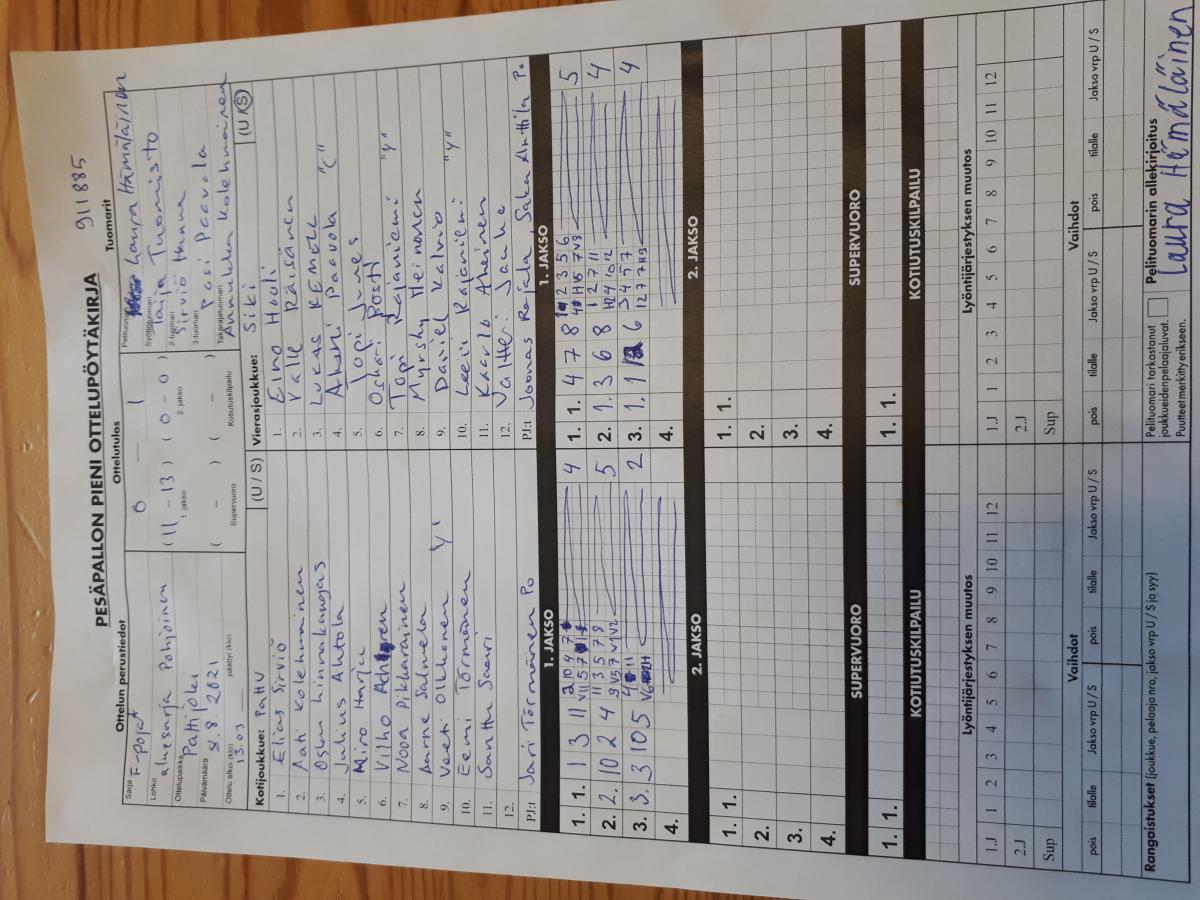 911885
PESÄPALLON PIENI OTTELUPÖYTÄKIRJA
Ottelun perustiedot Ottelutulos Tuomarit
Sarja F-pojat
Lohko aluesarja Pohjoinen
Ottelupaikka Pattijoki
Päivämäärä 8.2021
Ottelu alkoi (klo) 13.03 päättyi (klo)
0 – 1
(11 – 13) (0 – 0)
1. jakso 2. jakso
( – ) ( – )
Supervuoro Kotiutuskilpailu
Pelituomari Laura Hämäläinen
Syöttötuomari Taija Tuomisto
2-tuomari Sirviö Hanna
3-tuomari Pasi Paavola
Takarajatuomari Annukka Kolehmainen
Kotijoukkue: PattU (U / S)
1. Elias Sirviö
2. Aati Kolehmainen
3. Osku Hinnakangas
4. Julius Ahtola
5. Miro Harju
6. Vilho
7. Nooa Pikkarainen
8. Aarne Salmela
9. Veeti Olkkonen "Y"
10. Eemi Törmänen
11. Santtu Saari
12.
PJ:t Jari Törmänen Po
Vierasjoukkue: Siki (U / S)
1. Eino Huoli
2. Valle Räisänen
3. Lukas Kemell
4. Ahti Paavola "C"
5. Topi Junes
6. Oskari Posti "Y"
7. Topi Rajaniemi
8. Myrsky Heinonen
9. Daniel Kalmio "Y"
10. Leevi Rajaniemi
11. Kaarlo Ahonen
12. Valtteri Janhe
PJ:t Joonas Rajala, Saku Anttila Po
1. JAKSO 1. JAKSO
1. 1. 1 3 11 4
2. 2. 10 2 4 5
3. 3. 3 10 5 2
4.
1. 1. 4 7 8 5
2. 1. 3 6 8 4
3. 1. 1 6 4
4.
2. JAKSO 2. JAKSO
1. 1. 1. 1.
2. 2.
3. 3.
4. 4.
SUPERVUORO SUPERVUORO
1. 1. 1. 1.
KOTIUTUSKILPAILU KOTIUTUSKILPAILU
Lyöntijärjestyksen muutos Lyöntijärjestyksen muutos
1.J 1 2 3 4 5 6 7 8 9 10 11 12 1.J 1 2 3 4 5 6 7 8 9 10 11 12
2.J 2.J
Sup Sup
Vaihdot Vaihdot
pois tilalle Jakso vrp U / S pois tilalle Jakso vrp U / S pois tilalle Jakso vrp U / S pois tilalle Jakso vrp U / S
Rangaistukset (joukkue, pelaaja nro, jakso vrp U / S ja syy)
Pelituomari tarkastanut
joukkueidenpelaajaluvat.
Puutteet merkitty erikseen.
Pelituomarin allekirjoitus
Laura Hämäläinen